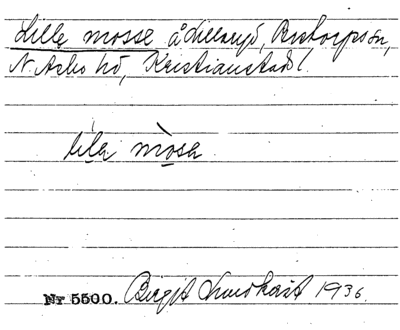 Lille mosse å Lillaryd, Perstorps sn,
N. Åsbo hd, Kristianstads l.
lila mosa
Nr 5500. Birgit Lundkvist 1936.